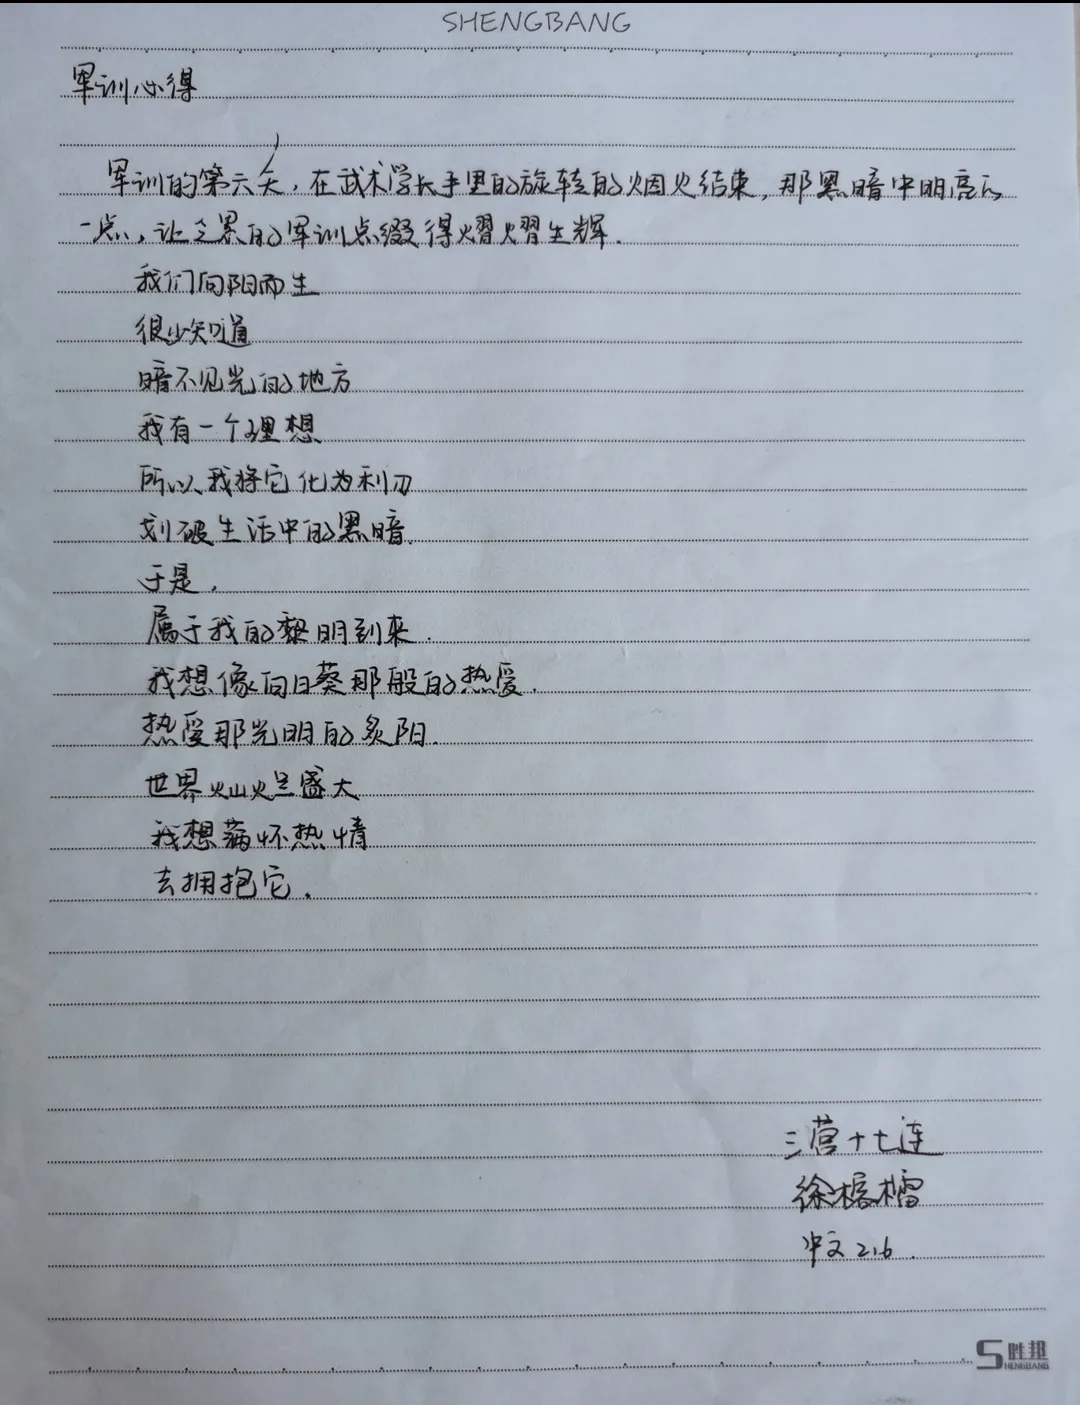 SHENGBANG
军训心得
军训的第六天，在武术学长手里的旋转的烟火结束，那黑暗中明亮的
一点，让乏累的军训点缀得熠熠生辉.
我们向阳而生
很少知道
暗不见光的地方
我有一个理想
所以我将它化为利刃
划破生活中的黑暗.
于是，
属于我的黎明到来.
我想像向日葵那般的热爱.
热爱那光明的炙阳.
世界灿烂盛大
我想满怀热情
去拥抱它.
三营十七连
徐榕
中文216.
S胜邦
SHENGBANG